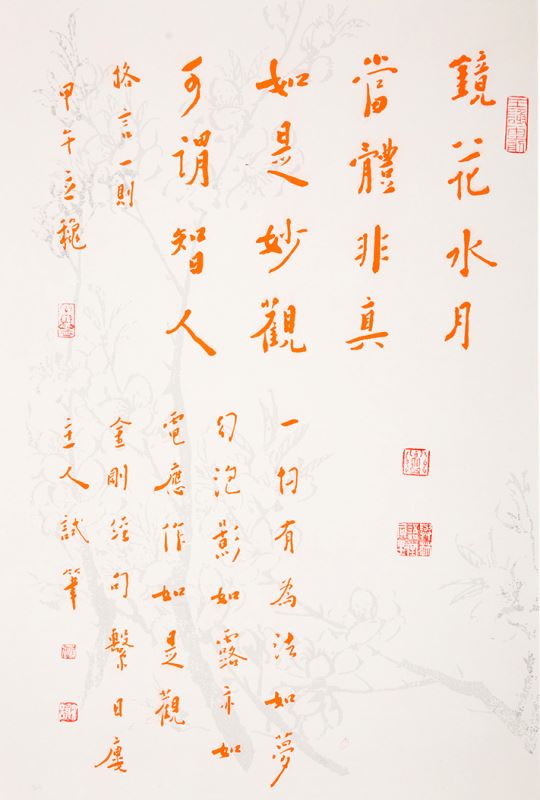 鏡花水月
當體非真
如是妙觀
可謂智人
格言一則
甲午立穐
一切有為法如夢
幻泡影如露亦如
電應作如是觀
金剛經句繫日廔
主人試筆